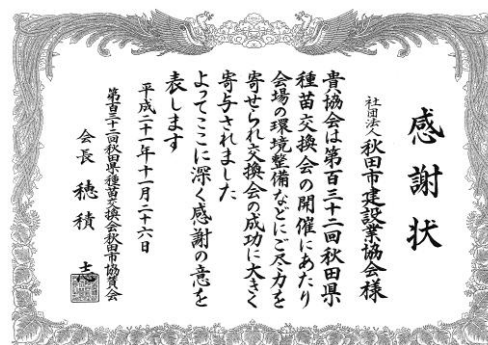 感謝状
社団法人 秋田市建設業協会様
貴協会は第百三十二回秋田県
種苗交換会の開催にあたり
会場の環境整備などにご尽力を
寄せられ交換会の成功に大きく
寄与されました
よってここに深く感謝の意を
表します
平成二十一年十一月二十六日
第百三十二回秋田県種苗交換会秋田市協賛会
会長 穂積 志